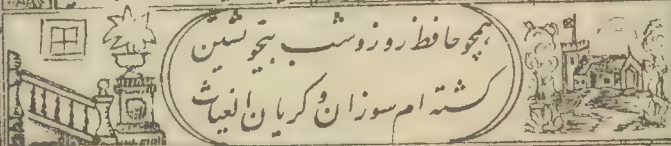 همچو حافظ روز و شب بیخویشتن
کشته ام سوزان و کریان الغیاث